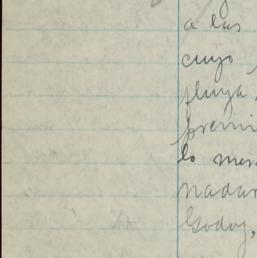 a las
cuyo
fluya,
premi
lo mer
nadar
Godoy,